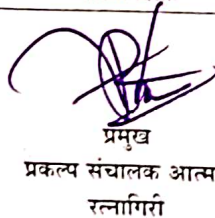 प्रमुख
प्रकल्प संचालक आत्मा
रत्नागिरी